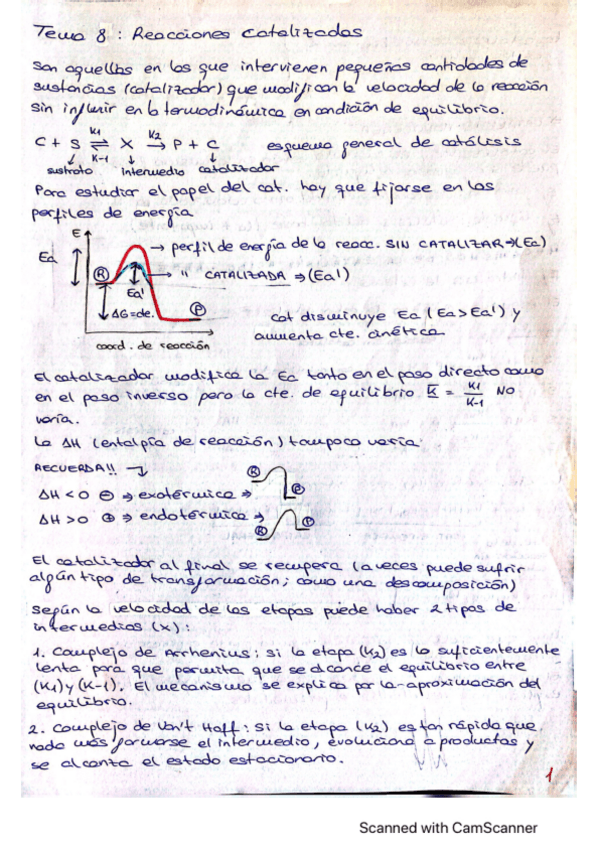 Tema 8: Reacciones catalizadas
son aquellas en las que intervienen pequeñas cantidades de
sustancias (catalizador) que modifican la velocidad de la reacción
sin influir en la termodinámica en condición de equilibrio.
C + S ⇌ X → P + C esquema general de catálisis
K1 K2
K-1
sustrato intermedio catalizador
Para estudiar el papel del cat. hay que fijarse en los
perfiles de energía
E
→ perfil de energía de la reac. SIN CATALIZAR ⇒ (Ea)
Ea
R → " " CATALIZADA ⇒ (Ea')
Ea'
ΔG=cte. P
cat disminuye Ea (Ea>Ea') y
aumenta cte. cinética
coord. de reacción
El catalizador modifica la Ea tanto en el paso directo como
en el paso inverso pero la cte. de equilibrio K = K1/K-1 NO
varía.
La ΔH (entalpía de reacción) tampoco varía.
RECUERDA!! →
ΔH < 0 ⊖ ⇒ exotérmica ⇒ R P
ΔH > 0 ⊕ ⇒ endotérmica → R P
El catalizador al final se recupera (a veces puede sufrir
algún tipo de transformación; como una descomposición)
según la velocidad de las etapas puede haber 2 tipos de
intermedios (x):
1. Complejo de Arrhenius: si la etapa (K2) es lo suficientemente
lenta para que permita que se alcance el equilibrio entre
(K1) y (K-1). El mecanismo se explica por la aproximación del
equilibrio.
2. Complejo de Van't Hoff: si la etapa (K2) es tan rápida que
nada más formarse el intermedio, evoluciona a productos y
se alcanza el estado estacionario.
1
Scanned with CamScanner